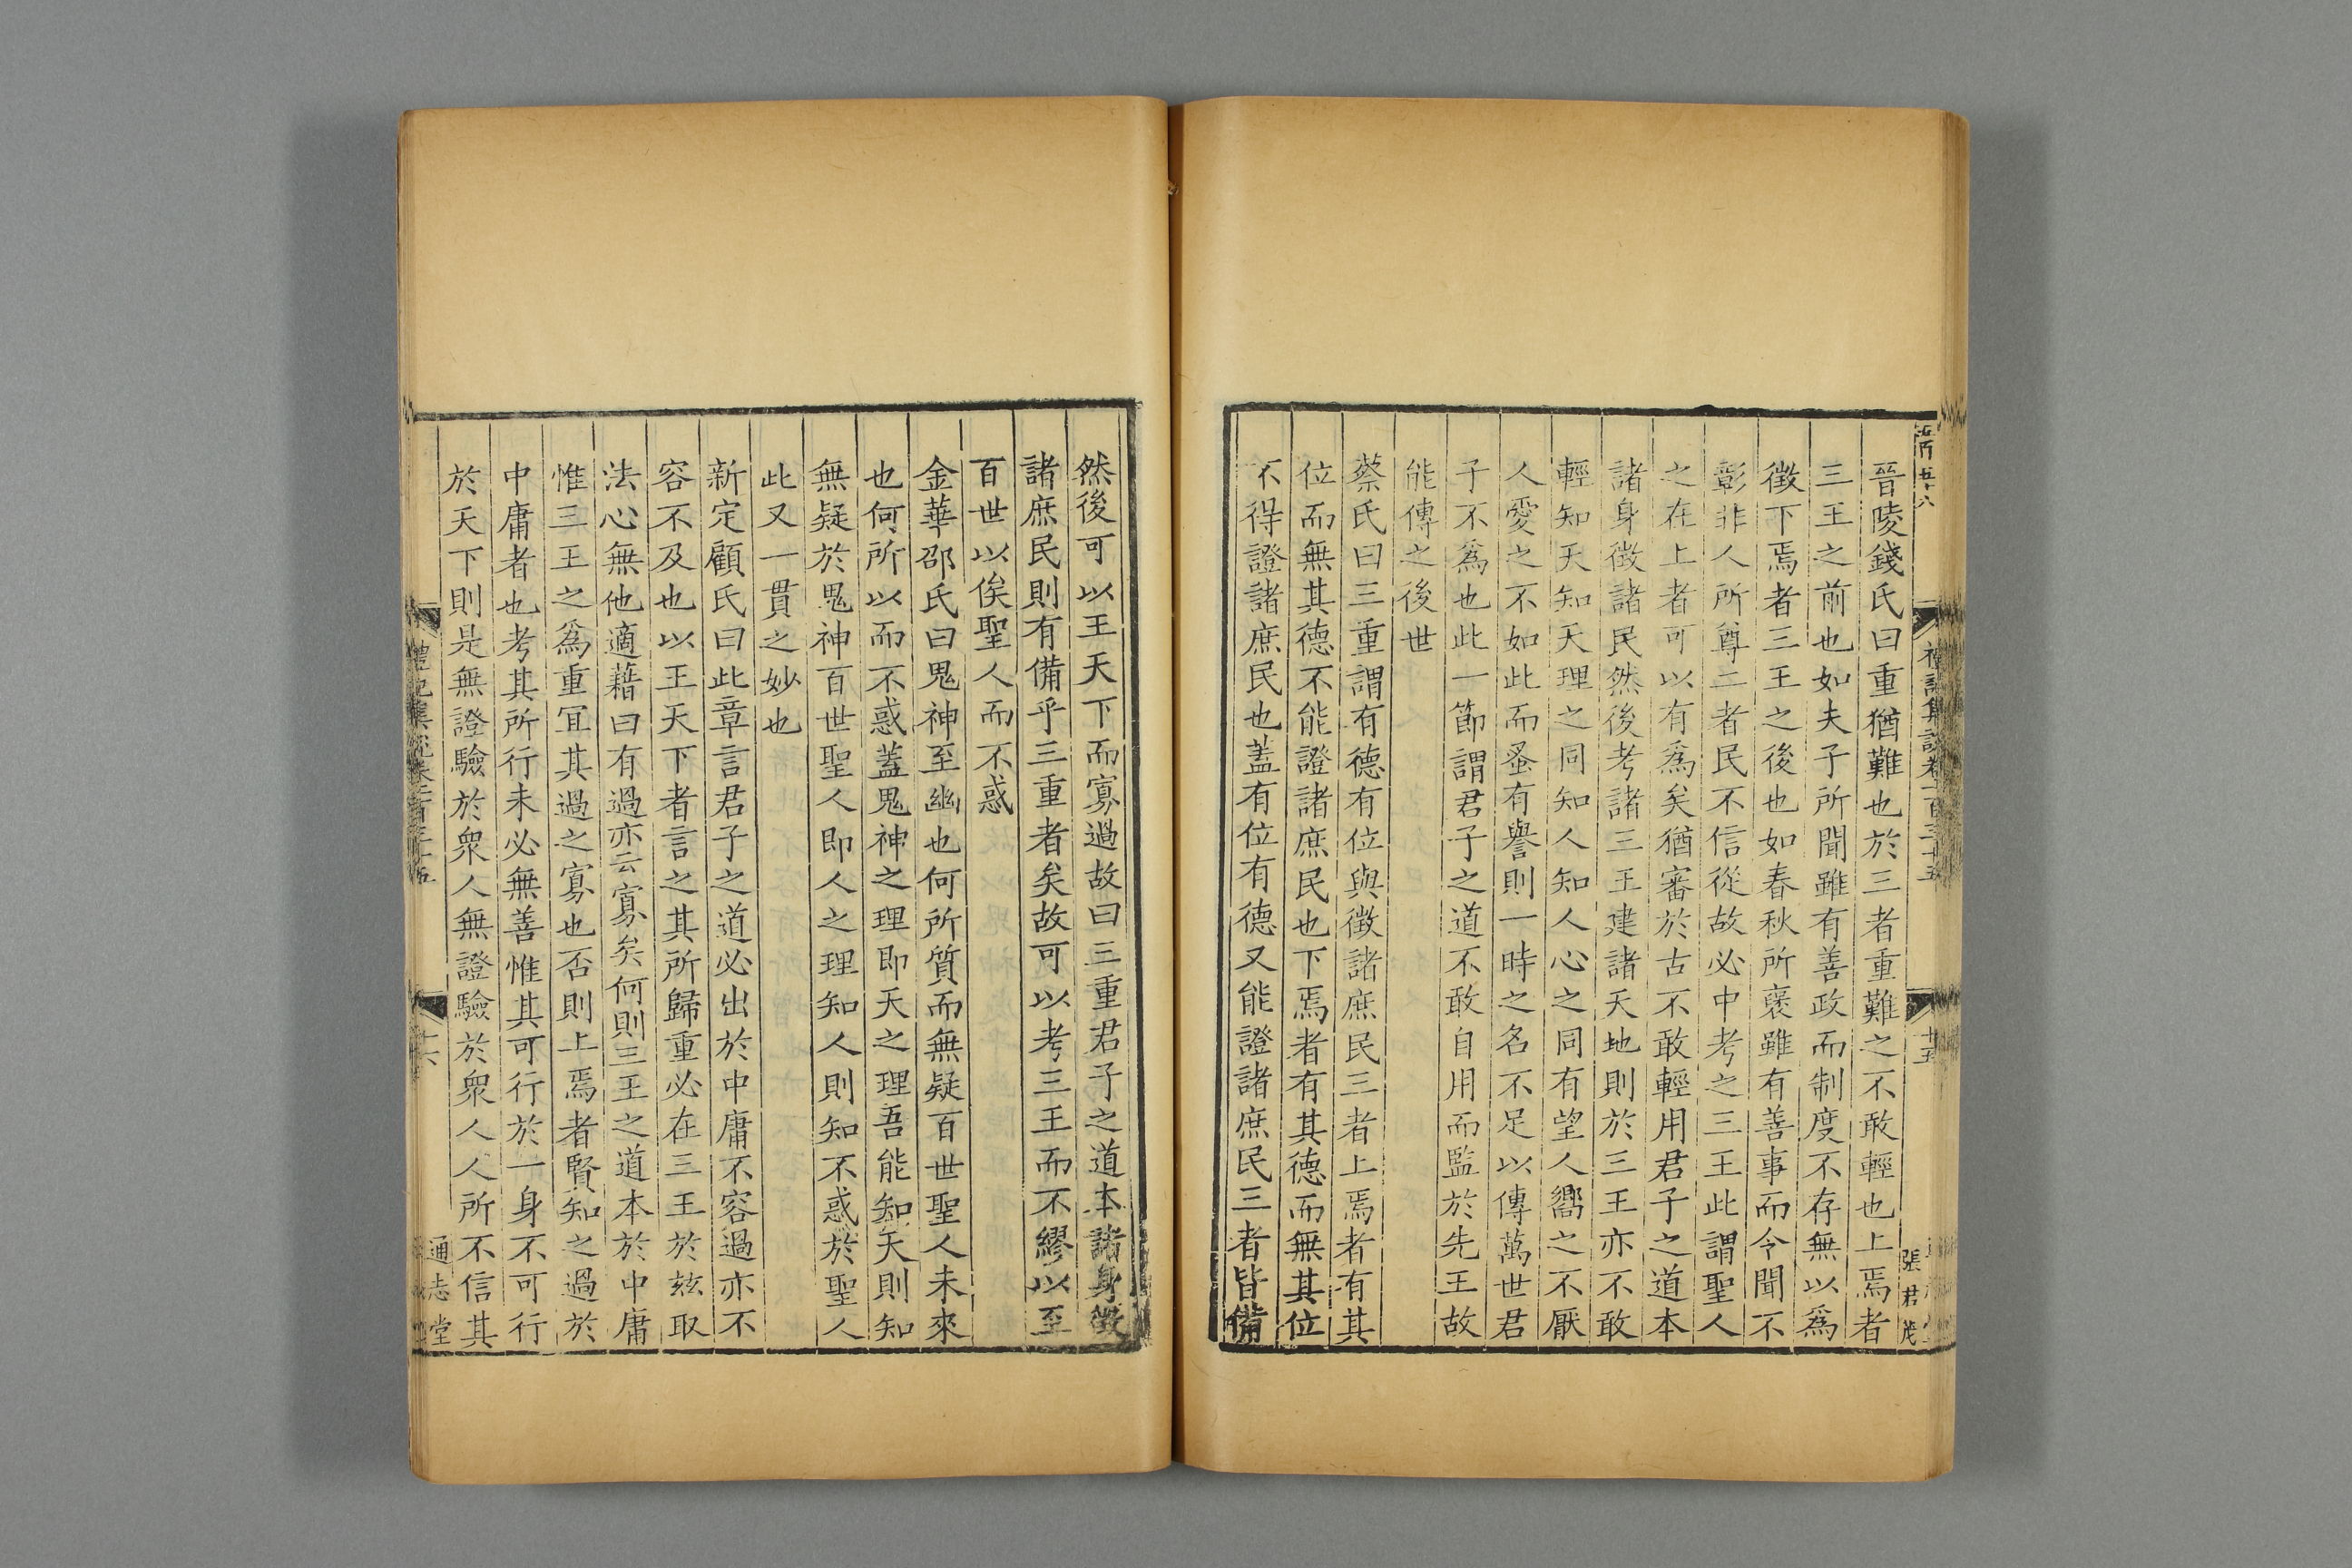 晉陵錢氏曰重猶難也於三者重難之不敢輕也上焉者
三王之前也如夫子所聞雖有善政而制度不存無以爲
徵下焉者三王之後也如春秋所褒雖有善事而令聞不
彰非人所尊二者民不信從故必中考之三王此謂聖人
之在上者可以有爲矣猶審於古不敢輕用君子之道本
諸身徵諸民然後考諸三王建諸天地則於三王亦不敢
輕知天知天理之同知人知人心之同有望人嚮之不厭
人愛之不如此而蚤有譽則一時之名不足以傳萬世君
子不爲也此一節謂君子之道不敢自用而監於先王故
能傳之後世
蔡氏曰三重謂有德有位與徵諸庶民三者上焉者有其
位而無其德不能證諸庶民也下焉者有其德而無其位
不得證諸庶民也蓋有位有德又能證諸庶民三者皆備
張君茂
十五
然後可以王天下而寡過故曰三重君子之道本諸身徵
諸庶民則有備乎三重者矣故可以考三王而不繆以至
百世以俟聖人而不惑
金華邵氏曰鬼神至幽也何所質而無疑百世聖人未來
也何所以而不惑蓋鬼神之理即天之理吾能知天則知
無疑於鬼神百世聖人即人之理知人則知不惑於聖人
此又一貫之妙也
新定顧氏曰此章言君子之道必出於中庸不容過亦不
容不及也以王天下者言之其所歸重必在三王於玆取
法心無他適藉曰有過亦云寡矣何則三王之道本於中庸
惟三王之爲重冝其過之寡也否則上焉者賢知之過於
中庸者也考其所行未必無善惟其可行於一身不可行
於天下則是無證驗於衆人無證驗於衆人人所不信其
禮記集說卷一百三十五
十六
通志堂